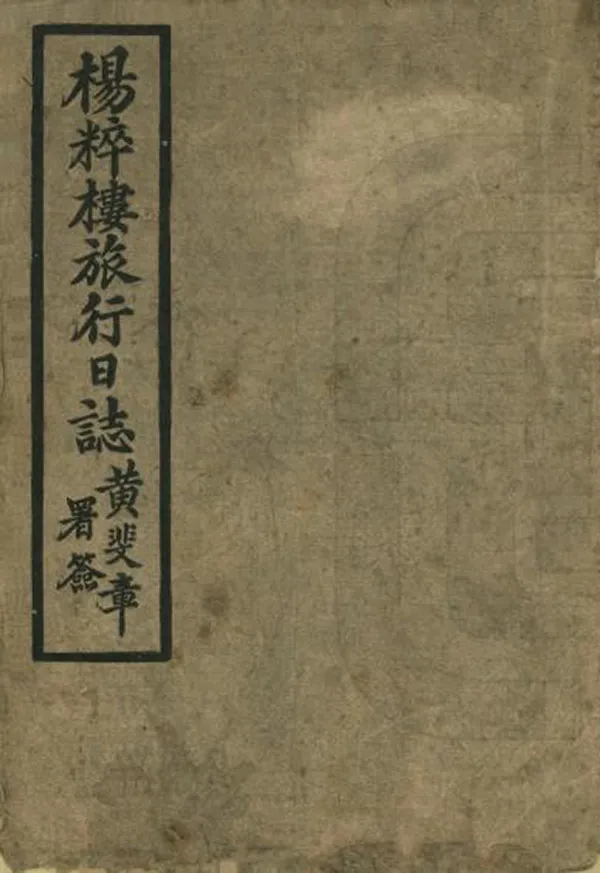 楊粹樓旅行日誌
黄斐章
署簽